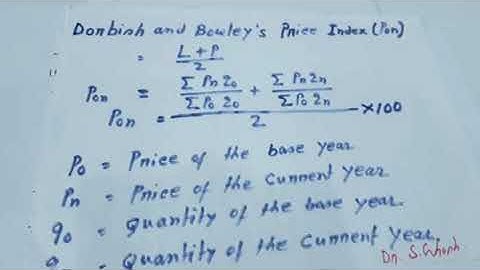 Dorbish and Bowley's Price Index (Pon)
= L + P / 2
Pon = Σ Pn q0 / Σ P0 q0 + Σ Pn qn / Σ P0 qn
Pon = / 2 × 100
P0 = Price of the base year
Pn = Price of the current year
q0 = Quantity of the base year.
= Quantity of the current year.
Dr. S. Ghosh